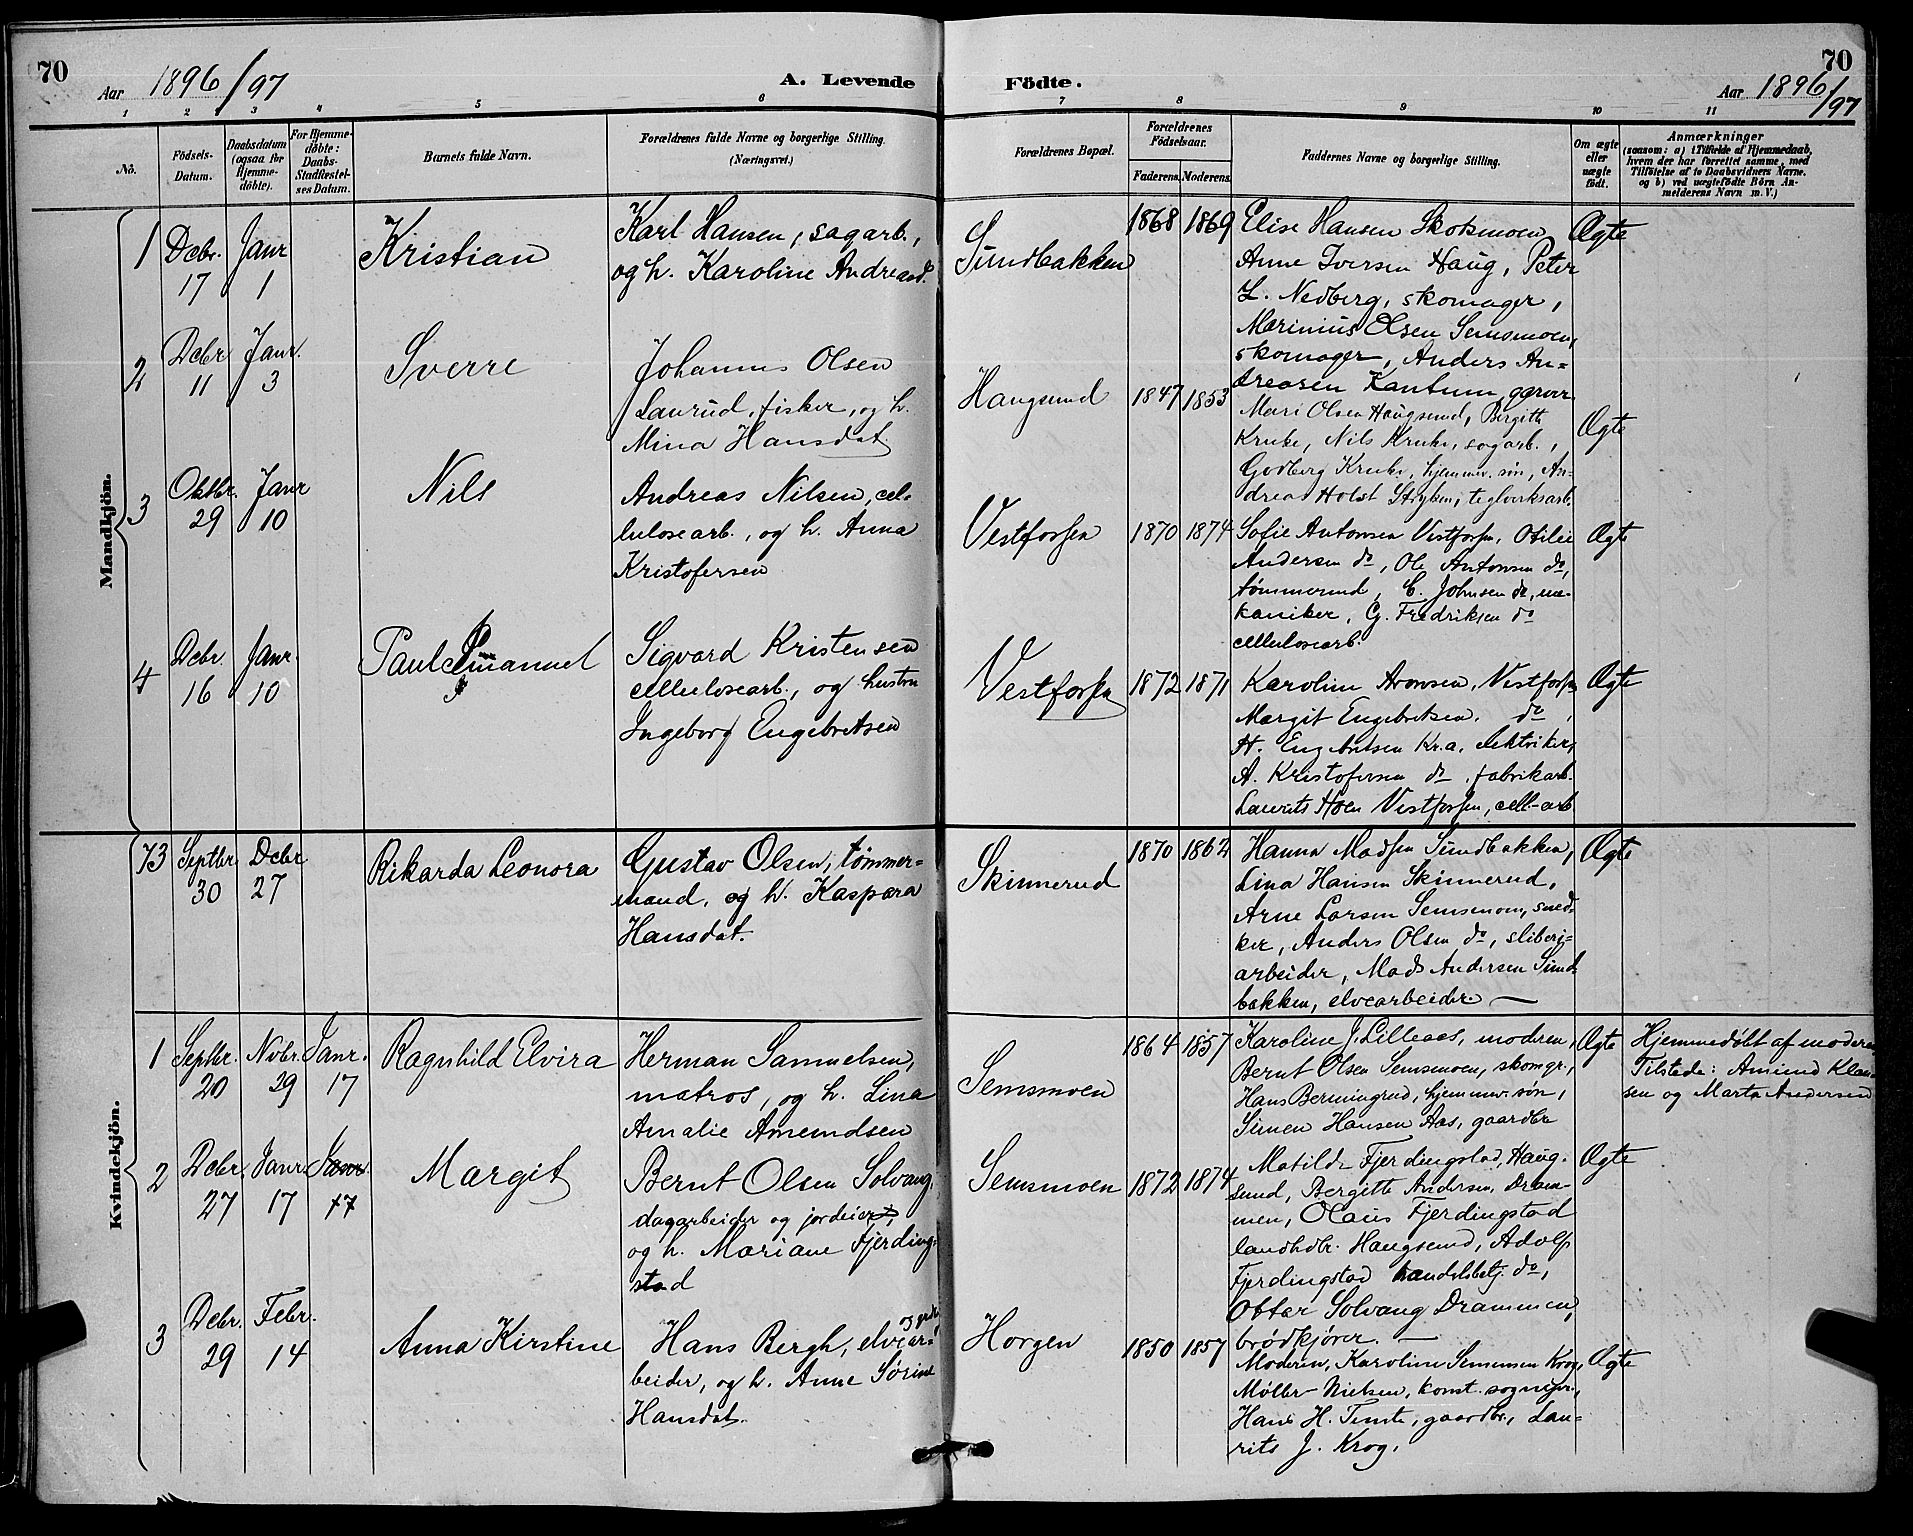 70
Aar 1896/97
A. Levende Födte.
Aar 1896/97
70
1 2 3 4 5 6 7 8 9 10 11
No.
Födsels-Datum.
Daabsdatum (ogsaa for Hjemme-döbte).
For Hjemme-döbte: Daabs-Stadfæstel-ses Datum.
Barnets fulde Navn.
Forældrenes fulde Navne og borgerlige Stilling. (Næringsvei.)
Forældrenes Bopæl.
Forældrenes Födselsaar.
Faderens. Moderens.
Faddernes Navne og borgerlige Stilling.
Om ægte eller uægte födt.
Anmærkninger
(saasom: a) i Tilfælde af Hjemmedaab,
hvem der har forrettet samme, med
Tilföielse af to Daabsvidners Navne.
og b) ved uægtefödte Börn An-
melderens Navn m. V.)
Mandkjön.
1 Debr. 17 Janr 1
Kristian
Karl Hansen, sagarb.,
og h. Karoline Andreasd.
Sundbakken
1868 1869
Elise Hansen Skotsmoen,
Anne Iversen Haug, Peter
L. Nedberg, skomager,
Marinius Olsen Semsmoen,
skomager, Anders An-
dreasen Kantum, garver
Ægte
2 Debr 11 Janr. 3
Sverre
Johannes Olsen
Laurud, fisker, og h.
Mina Hansdat.
Haugsund
1847 1853
Mari Olsen Haugsund, Bergitte
Kruke, Nils Kruke, sagarb.,
Godberg Kruke, hjemmev. søn, An-
dreas Holst Stryken, teglverksarb.
Ægte
3 Oktbr. 29 Janr 10
Nils
Andreas Nilsen, cel-
lulosearb., og h. Anna
Kristofersen
Vestfossen
1870 1874
Sofie Antonsen Vestfossen, Otilie
Andersen do, Ole Antonsen do,
tømmermd, C. Johnsen do, me-
kaniker, G. Fredriksen do
cellulosearb.
Ægte
4 Debr. 16 Janr. 10
Paul Emanuel
Sigvard Kristensen
cellulosearb., og hustru
Ingeborg Engebretsen
Vestfossen
1872 1871
Karoline Aronsen, Vestfossen
Margit Engebretsen, do,
H. Engebretsen Kr.a. elektriker,
A. Kristofersen do, fabrikarb.
Laurits Hoen Vestfossen, cell.-arb
Ægte
Kvindekjön.
73 Septbr. 30 Debr 27
Rikarda Leonora
Gustav Olsen, tømmer-
mand, og h. Kaspara
Hansdat.
Skinnerud
1870 1862
Hanna Madsen Sundbakken,
Lina Hansen Skinnerud,
Arne Larsen Semsmoen, sned-
ker, Anders Olsen do, sliberi-
arbeider, Mads Andersen Sund-
bakken, elvearbeider. —
Ægte
1 Septbr. 20 Novbr. 29 Janr. 17
Ragnhild Elvira
Herman Samuelsen,
matros, og h. Lina
Amalie Amundsen
Semsmoen
1864 1857
Karoline J. Lilleaas, moderen,
Bernt Olsen Semsmoen, skomgr.,
Hans Bermingrud, hjemmev. søn,
Simen Hansen Aas, gaardbr
Ægte
Hjemmedøbt af moderen
Tilstede: Amund Klau-
sen og Marta Andersen
2 Debr. 27 Janr. 17 Janr. 17
Margit
Bernt Olsen Solvang,
dagarbeider og jordeier,
og h. Mariane Fjerding-
stad
Semsmoen
1872 1874
Matilde Fjerdingstad, Haug-
sund, Bergitte Andersen, Dram-
men, Olaus Fjerdingstad
landhdlr. Haugsund, Adolf
Fjerdingstad handelsbetj. do,
Ottar Solvang Drammen,
brødkjører. —
Ægte
3 Debr. 29 Febr. 14
Anna Kirstine
Hans Bergh, elvear-
beider, og h. Anne Sørine
Hansdat.
Horgen
1850 1857
Moderen, Karoline Simensen Krog,
Møller-Nielsen, konst. sognepr.,
Hans H. Temte, gaardbr., Lau-
rits J. Krog.
Ægte